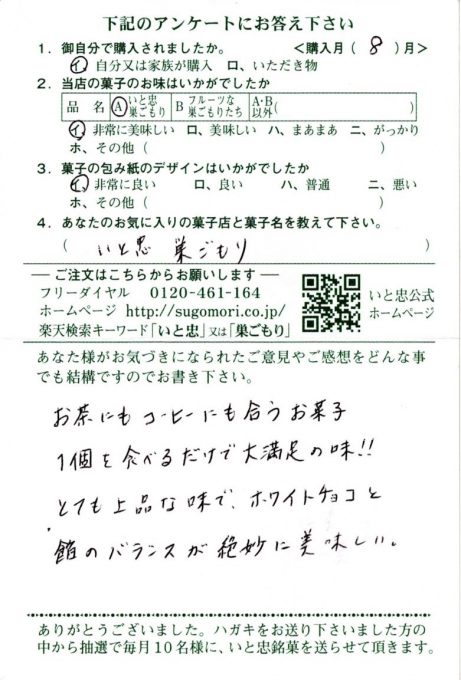 下記のアンケートにお答え下さい
1．御自分で購入されましたか。 ＜購入月（ 8 ）月＞
イ、自分又は家族が購入 ロ、いただき物
2．当店の菓子のお味はいかがでしたか
品 名 A いと忠巣ごもり B フルーツな巣ごもりたち A・B以外（ ）
イ、非常に美味しい ロ、美味しい ハ、まあまあ ニ、がっかり
ホ、その他（ ）
3．菓子の包み紙のデザインはいかがでしたか
イ、非常に良い ロ、良い ハ、普通 ニ、悪い
ホ、その他（ ）
4．あなたのお気に入りの菓子店と菓子名を教えて下さい。
（ いと忠 巣ごもり ）
― ご注文はこちらからお願いします ―
フリーダイヤル 0120-461-164
ホームページ http://sugomori.co.jp/
楽天検索キーワード「いと忠」又は「巣ごもり」
いと忠公式
ホームページ
あなた様がお気づきになられたご意見やご感想をどんな事
でも結構ですのでお書き下さい。
お茶にもコーヒーにも合うお菓子
1個を食べるだけで大満足の味!!
とても上品な味で、ホワイトチョコと
餡のバランスが絶妙に美味しい。
ありがとうございました。ハガキをお送り下さいました方の
中から抽選で毎月10名様に、いと忠銘菓を送らせて頂きます。